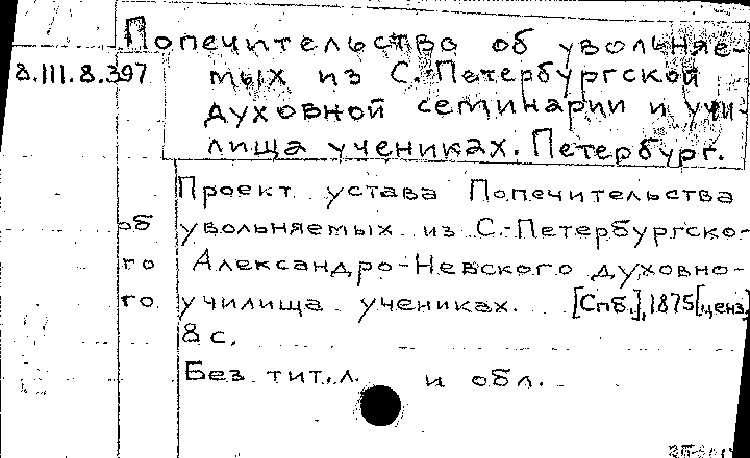 Попечительства об увольняе-
8.III.8.397 мых из С.-Петербургской
духовной семинарии и учи-
лища учениках. Петербург.
Проект устава Попечительства
об увольняемых из С.-Петербургско-
го Александро-Невского духовно-
го училища учениках. [Спб.], 1875 [ценз.]
8 с.
Без тит. л. и обл.